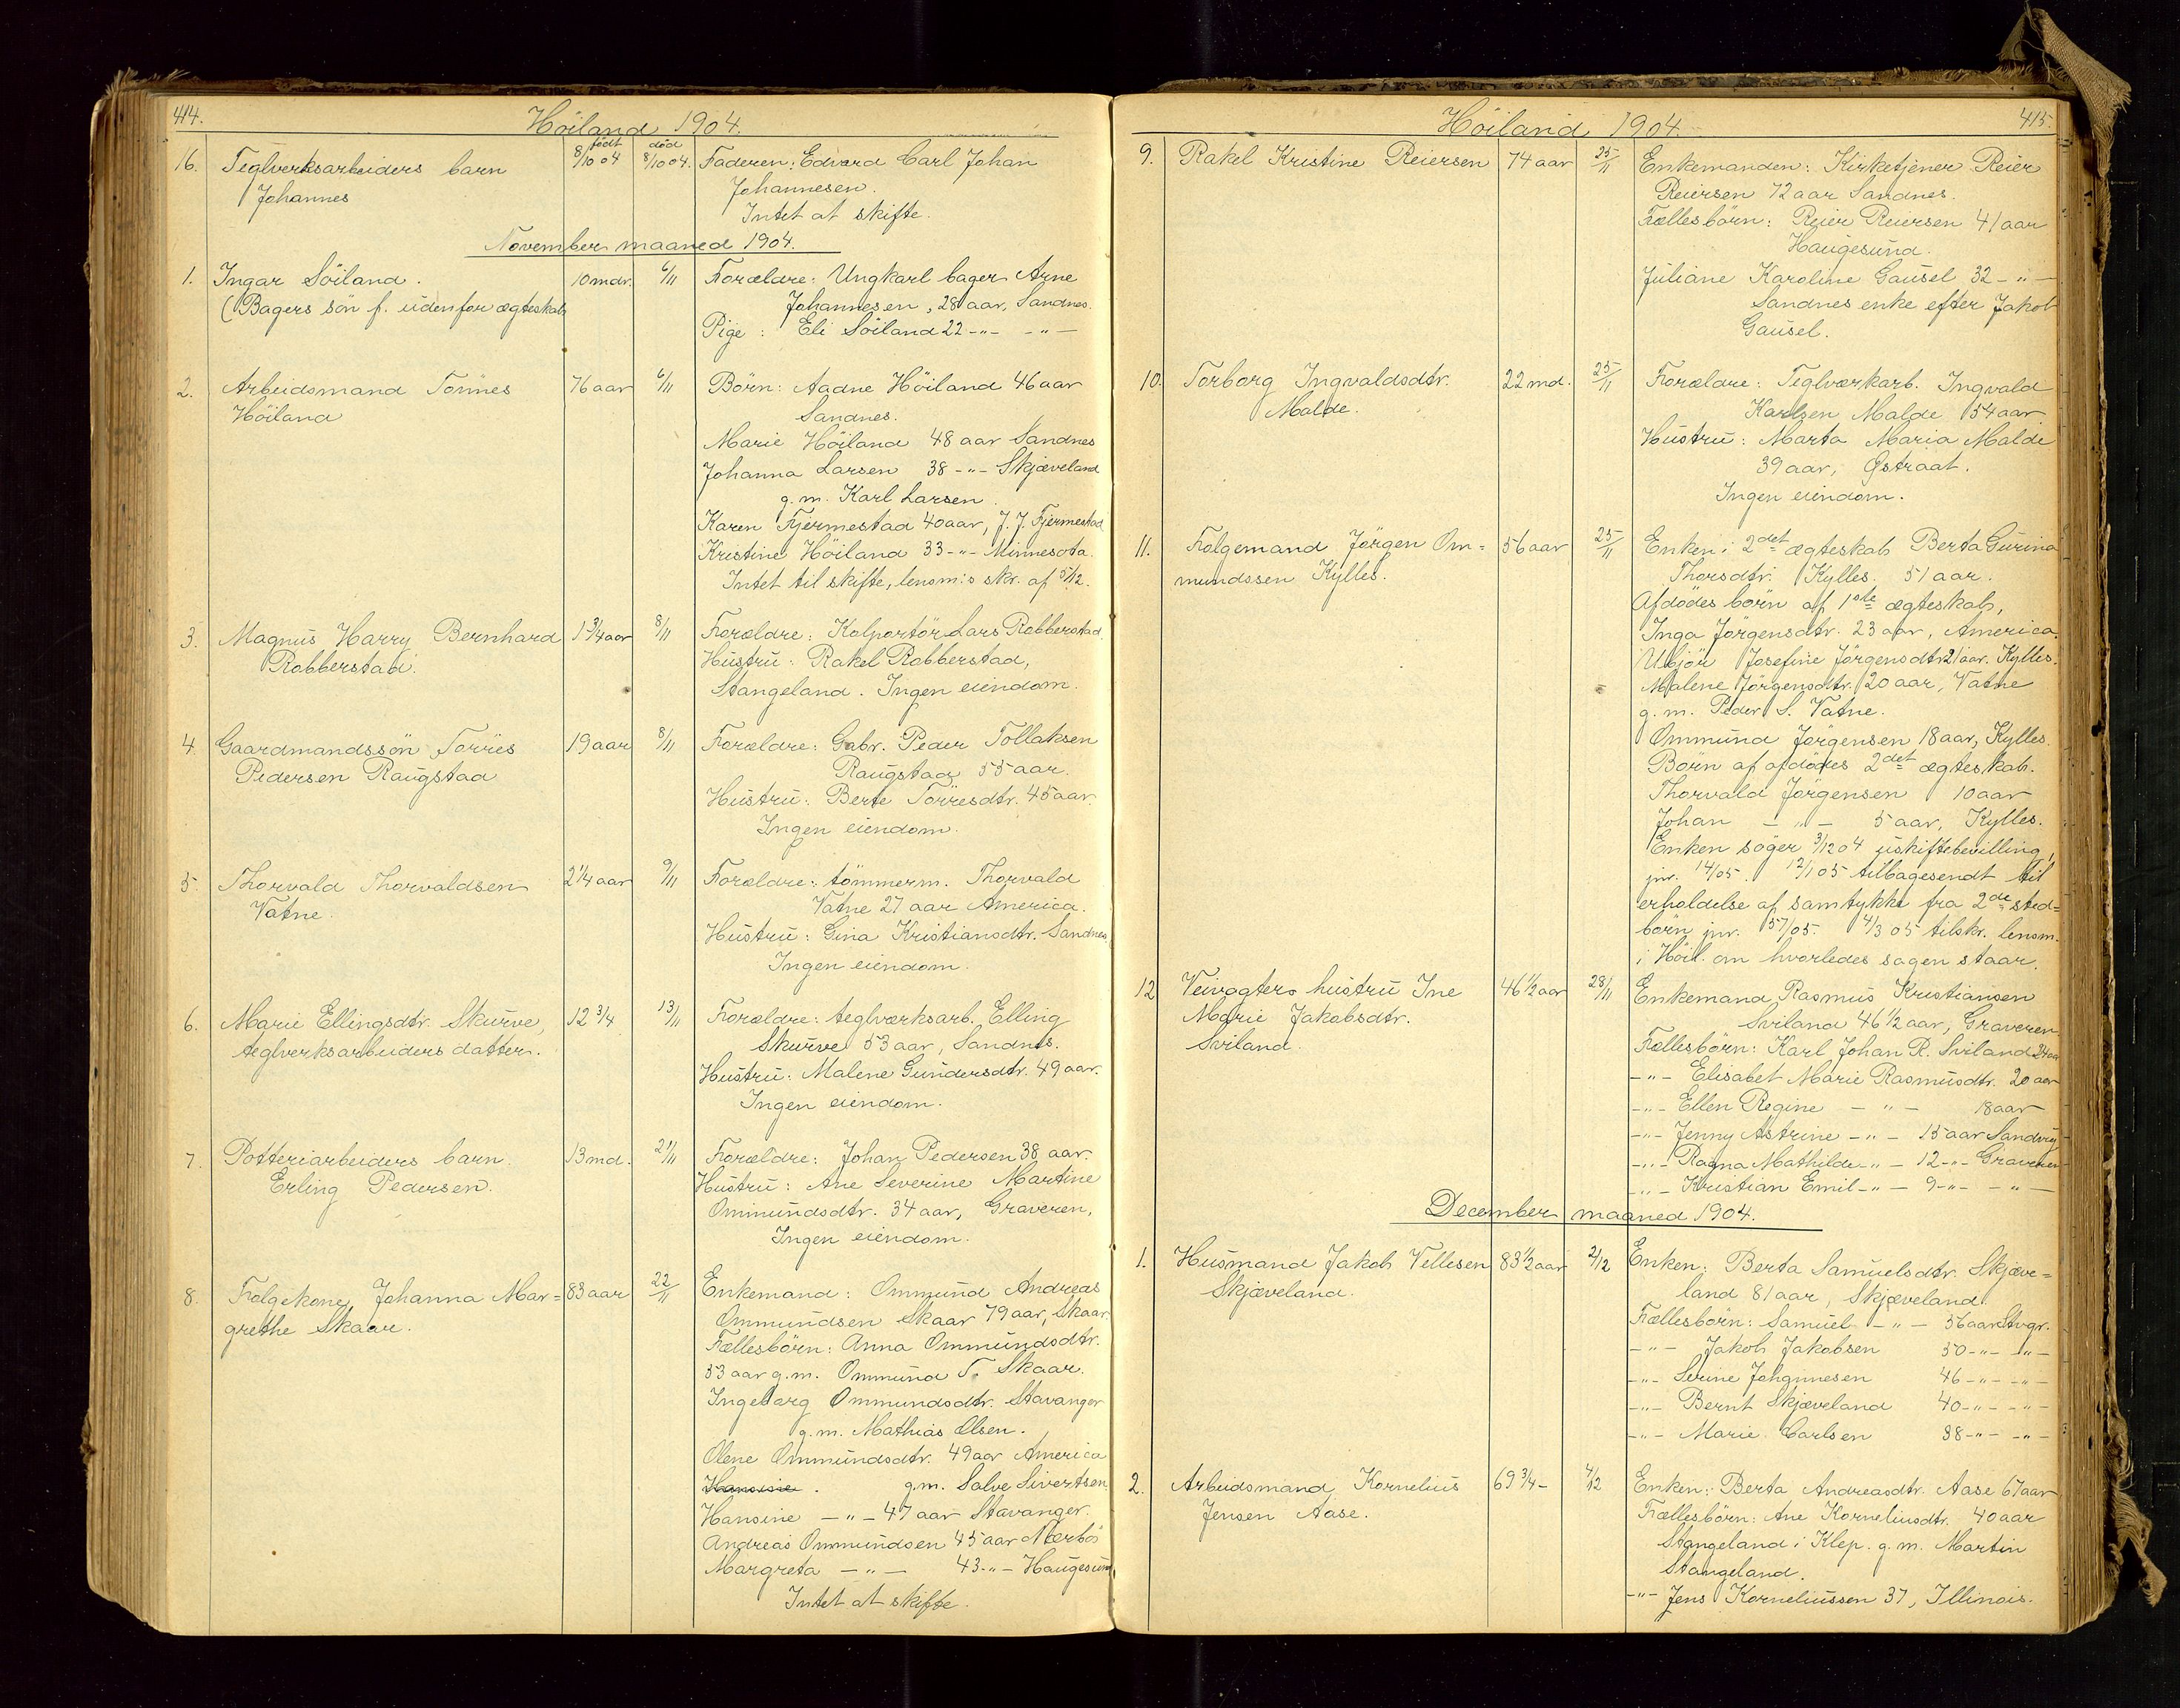 414.
Höiland 1904.
født død
16. Teglverksarbeiders barn 8/10 04 8/10 04. Faderen: Edvard Carl Johan
Johannes Johannesen.
Intet at skifte.
November maaned 1904.
1. Ingar Söiland. 10 mdr. 6/11 Forældre: Ungkarl bager Arne
(Bagers sön f. udenfor ægteskab Johannesen, 28 aar, Sandnes.
Pige: Eli Söiland 22 -"- -"-
2. Arbeidsmand Tönnes 76 aar 6/11 Börn: Aadne Höiland 46 aar
Höiland Sandnes.
Marie Höiland 48 aar Sandnes
Johanna Larsen 38 -"- Skjæveland
g. m. Karl Larsen.
Karen Fjermestad 40 aar, J. J. Fjermestad
Kristine Höiland 33 -"- Minnesota.
Intet til skifte, lensm:s skr. af 5/12.
3. Magnus Harry Bernhard 1 3/4 aar 8/11 Forældre: Kolportör Lars Robberstad.
Robberstad. Hustru: Rakel Robberstad,
Stangeland. Ingen eiendom.
4. Gaardmandssön Torris 19 aar 8/11 Forældre: Gabr. Peder Tollaksen
Pedersen Raugstad Raugstad 55 aar.
Hustru: Berte Torresdtr. 45 aar.
Ingen eiendom.
5. Thorvald Thorvaldsen 2 1/4 aar 9/11 Forældre: tömmerm. Thorvald
Vatne. Vatne 27 aar America.
Hustru: Gina Kristiansdtr. Sandnes
Ingen eiendom.
6. Marie Ellingsdtr. Skurve, 12 3/4 13/11 Forældre: teglværksarb. Elling
teglverksarbeiders datter. Skurve 53 aar, Sandnes.
Hustru: Malene Gundersdtr. 49 aar.
Ingen eiendom.
7. Potteriarbeiders barn 13 md. 21/11 Forældre: Johan Pedersen 38 aar.
Erling Pedersen. Hustru: Ane Severine Martine
Ommundsdtr. 34 aar, Graveren,
Ingen eiendom.
8. Folgekone Johanna Mar= 83 aar 22/11 Enkemand: Ommund Andreas
grethe Skaar. Ommundsen Skaar 79 aar, Skaar.
Fællesbörn: Anna Ommundsdtr.
53 aar g. m. Ommund T. Skaar.
Ingeborg Ommundsdtr. Stavanger
g. m. Mathias Olsen.
Olene Ommundsdtr. 49 aar America
Hansine. g. m. Salve Sivertsen.
Hansine -"- 47 aar Stavanger.
Andreas Ommundsen 45 aar Nærbö
Margreta -"- 43 -"- Haugesund
Intet at skifte.
Höiland 1904.
415.
9. Rakel Kristine Reiersen 74 aar 25/11 Enkemanden: Kirketjener Reier
Reiersen 72 aar Sandnes.
Fællesbörn: Reier Reiersen 41 aar
Haugesund.
Juliane Karoline Gausel 32 -"-
Sandnes enke efter Jakob
Gausel.
10. Torborg Ingvaldsdtr. 22 md. 25/11 Forældre: Teglværkarb. Ingvald
Malde. Karlsen Malde 54 aar
Hustru: Marta Maria Malde
39 aar, Østraat.
Ingen eiendom.
11. Folgemand Jörgen Om= 56 aar 25/11 Enken i 2det ægteskab Berta Gurina
mundssen Kylles. Thorsdtr. Kylles. 51 aar.
Afdödes börn af 1ste ægteskab,
Inga Jörgensdtr. 23 aar, America.
Josefine Jörgensdtr 21 aar. Kylles.
Malene Jörgensdtr. 20 aar, Vatne
g. m. Peder S. Vatne.
Ommund Jörgensen 18 aar, Kylles.
Börn af afdödes 2det ægteskab.
Thorvald Jörgensen 10 aar
Johan -"- 5 aar, Kylles.
Enken söger 3/12 04 uskiftebevilling,
jnr. 14/05. 12/1 05 tilbagesendt til
erholdelse af samtykke fra 2de sted=
börn jnr. 157/05. 4/3 05 tilskr. lensm.
i Höil. om hvorledes sagen staar.
12 Veivogters hustru Ine 46 1/2 aar 28/11 Enkemand Rasmus Kristiansen
Marie Jakobsdtr. Sviland 46 1/2 aar, Graveren
Sviland. Fællesbörn: Karl Johan R. Sviland 24 aar
-"- Elisabet Marie Rasmusdtr. 20 aar
-"- Ellen Regine -"- 18 aar
-"- Jenny Astrine -"- 15 aar Sandvig
-"- Ragna Mathilde -"- 12 -"- Graveren
-"- Kristian Emil -"- 9 -"- -"-
December maaned 1904.
1. Husmand Jakob Vellesen 83 1/2 aar 2/12 Enken: Berta Samuelsdtr. Skjæve=
Skjæveland. land 81 aar, Skjæveland.
Fællesbörn: Samuel -"- 56 aar Stvgr.
-"- Jakob Jakobsen 50 -"- -"-
-"- Serine Johannesen 46 -"- -"-
-"- Bernt Skjæveland 40 -"- -"-
-"- Marie Carlsen 38 -"- -"-
2. Arbeidsmand Kornelius 69 3/4 - 4/12 Enken: Berta Andreasdtr. Aase 67 aar
Jensen Aase. Fællesbörn: Ane Korneliusdtr. 40 aar
Stangeland i Klep. g. m. Martin
Stangeland.
-"- Jens Korneliussen 37, Illinois.